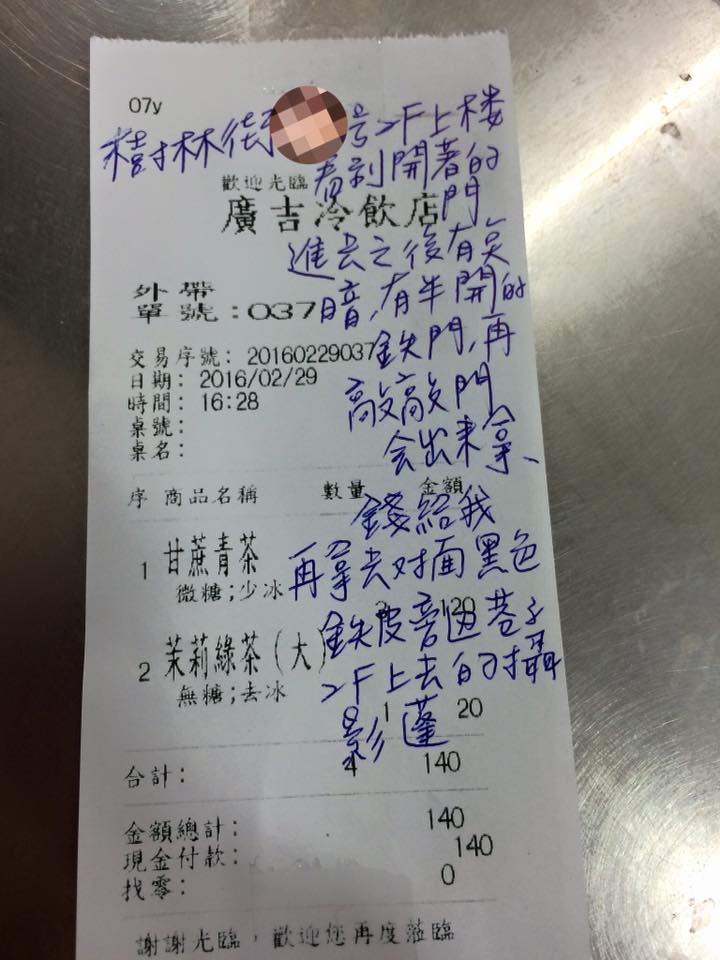 07y
樹林街 号2F上楼
看到開著的
門
歡迎光臨
廣吉冷飲店
進去之後有点
暗,有半開的
鉄門,再
敲敲門
会出來拿、
錢給我
再拿去对面黑色
鉄皮旁边巷子
2F上去的攝
影蓬
外帶
單號:037
交易序號: 20160229037
日期: 2016/02/29
時間: 16:28
桌號:
桌名:
序 商品名稱 數量 金額
1 甘蔗青茶
微糖;少冰
120
2 茉莉綠茶(大)
無糖;去冰
1 20
合計: 4 140
金額總計: 140
現金付款: 140
找零: 0
謝謝光臨,歡迎您再度蒞臨